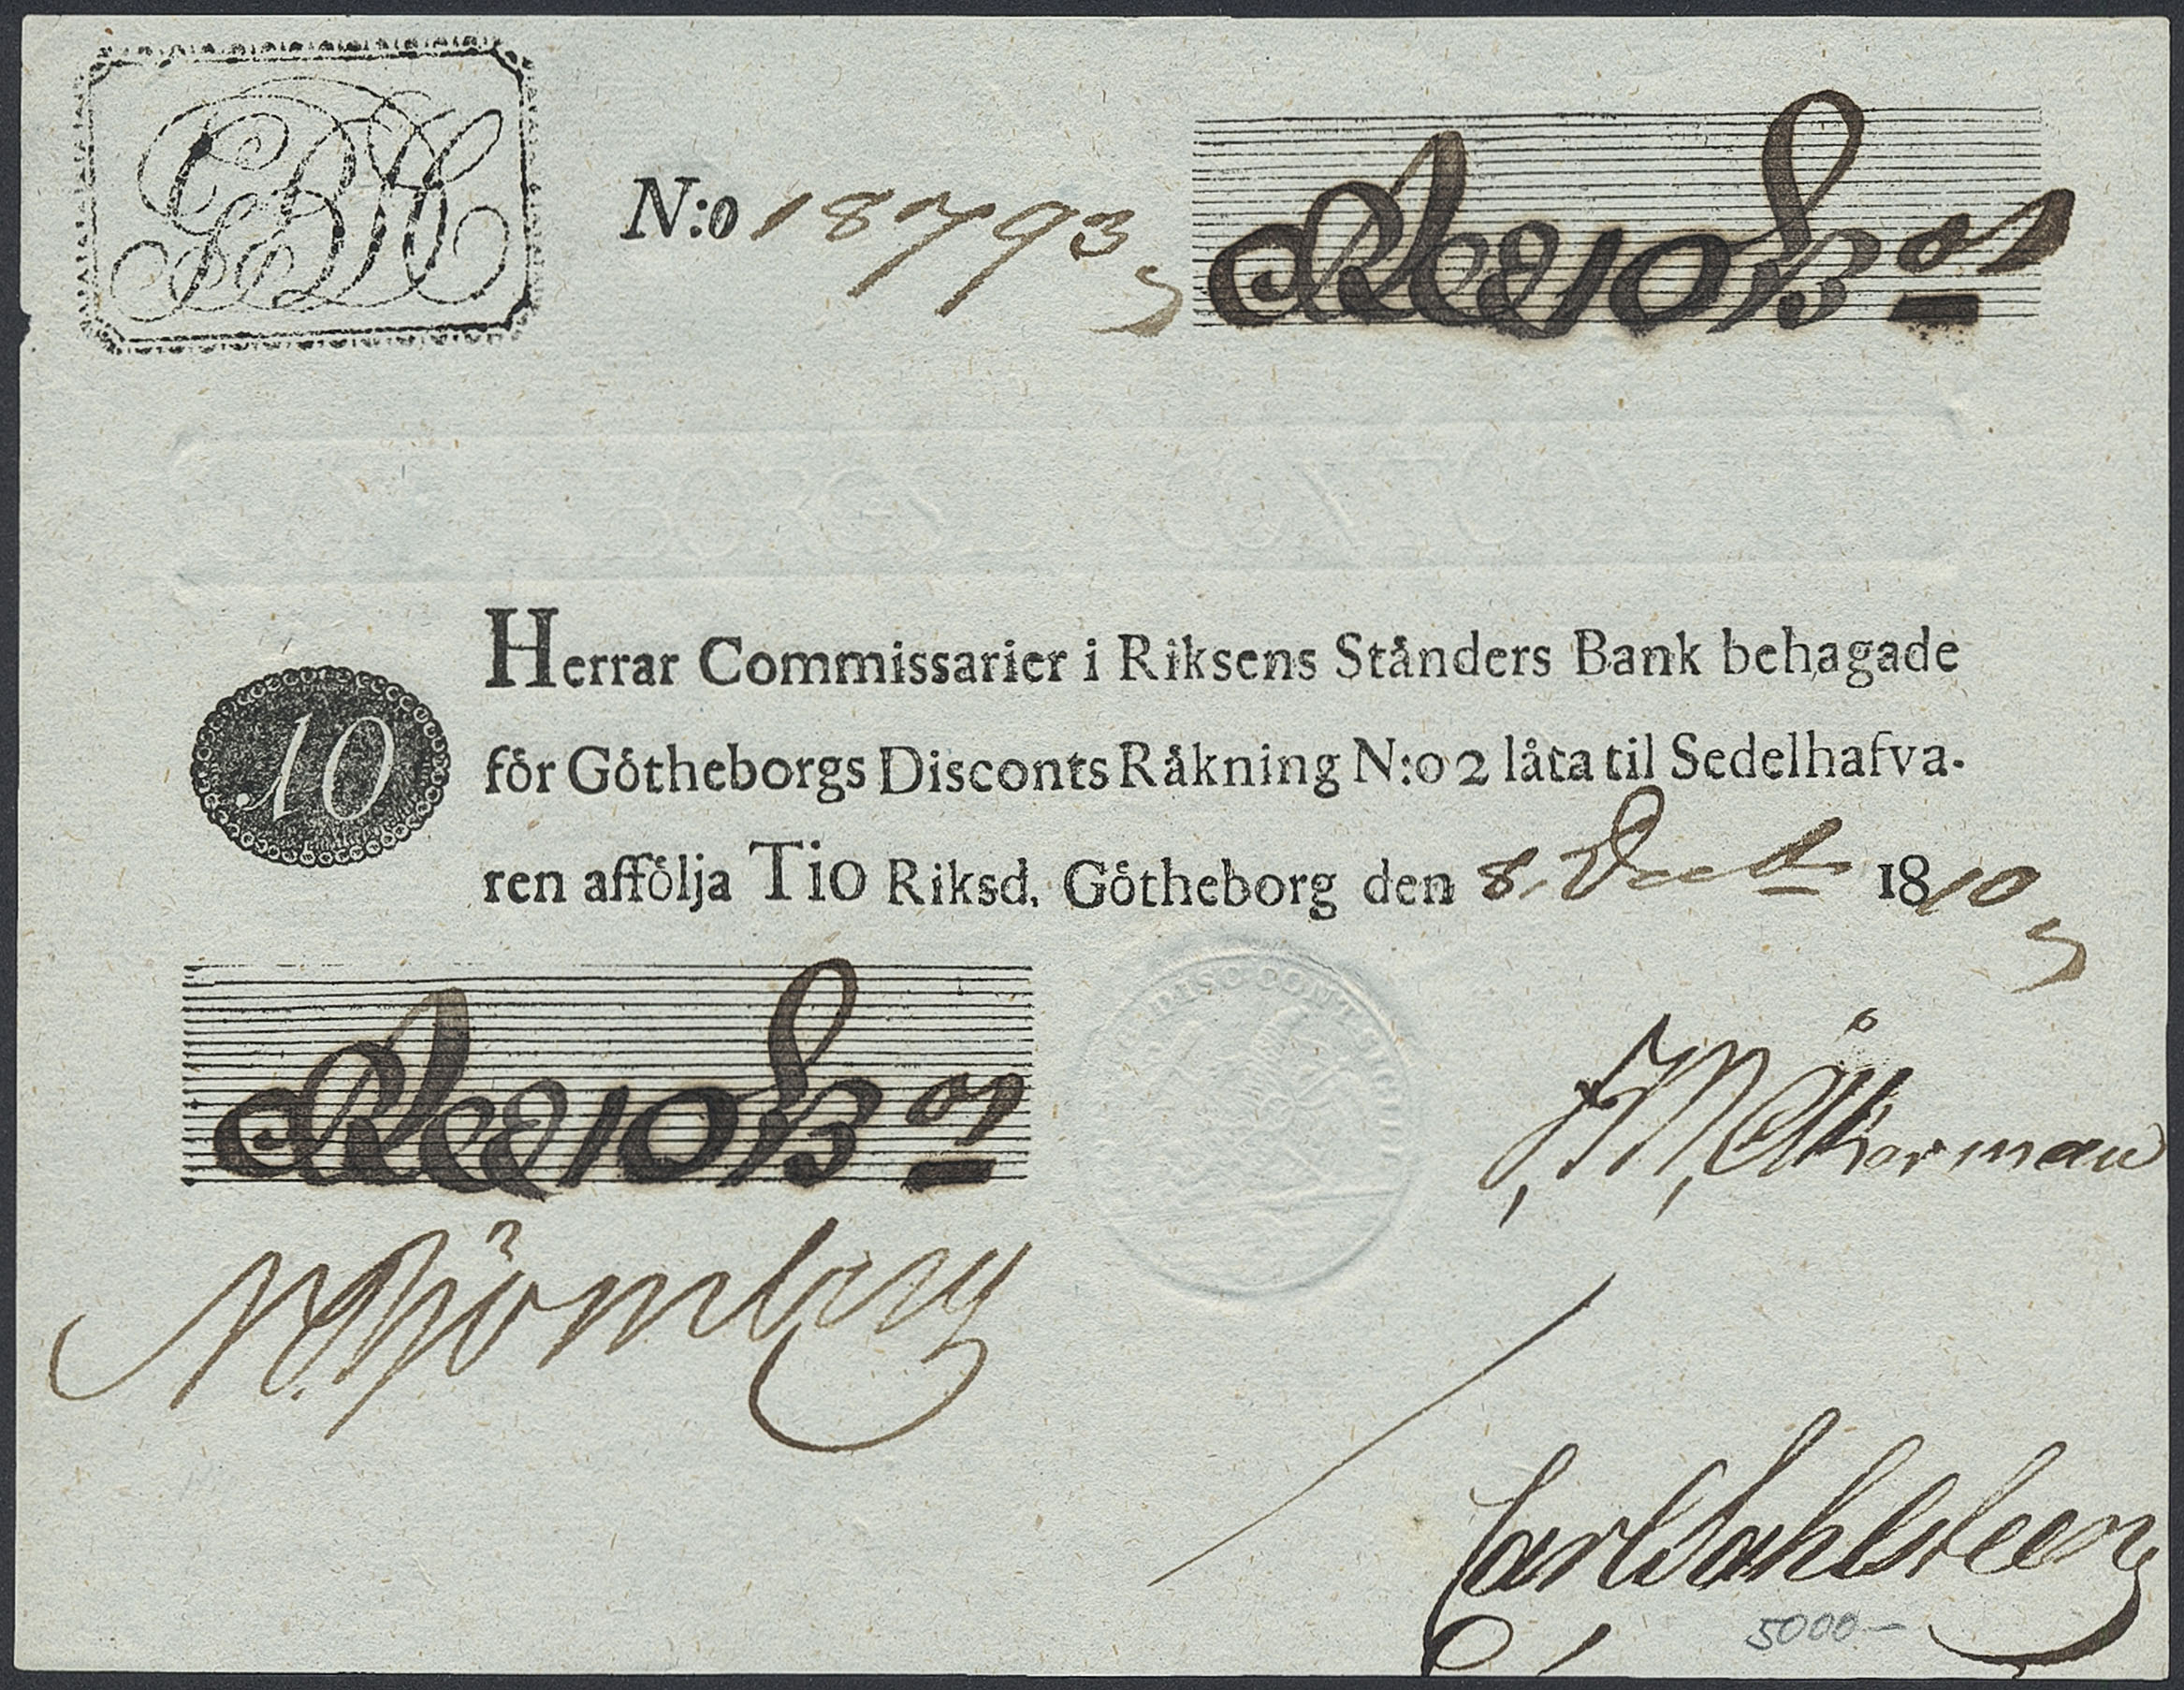 GDK
N:o 18793
Rd 10 ß
BORGS CONTOIR
10
Herrar Commissarier i Riksens Stånders Bank behagade
för Götheborgs Disconts Råkning N:o 2 låta til Sedelhafva-
ren afföllja Tio Riksd. Götheborg den 8. Decbr 1810
Rd 10 ß
DISCCONT
J, M, Åkerman
N. Björnberg
Carl Sahlsteen
5000-